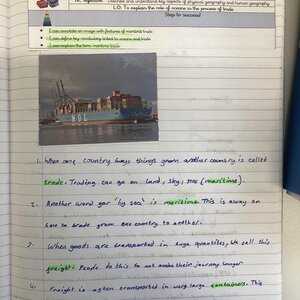 Describe and understand key aspects of physical geography and human geography
L.O: To explain the role of oceans in the process of trade
Step to success!
I can annotate an image with features of maritime trade
I can define key vocabulary linked to oceans and trade
I can explain the term maritime trade
MOL
1. When one country buys things from another country is called
trade. Trading can go on land, sky, seas (maritime).
2. Another word for 'by sea' is maritime. This is away on
how to trade from one country to another.
3. When goods are transported in huge quantities, we call this
freight. People do this to not make their journey longer
4. Freight is often transported in very large containers. This